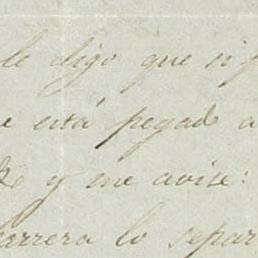 le digo que si
e está pegado a
y me avise:
barrera lo separ